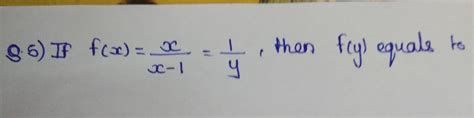 Q.6) If f(x) = x/(x-1) = 1/y, then f(y) equals to